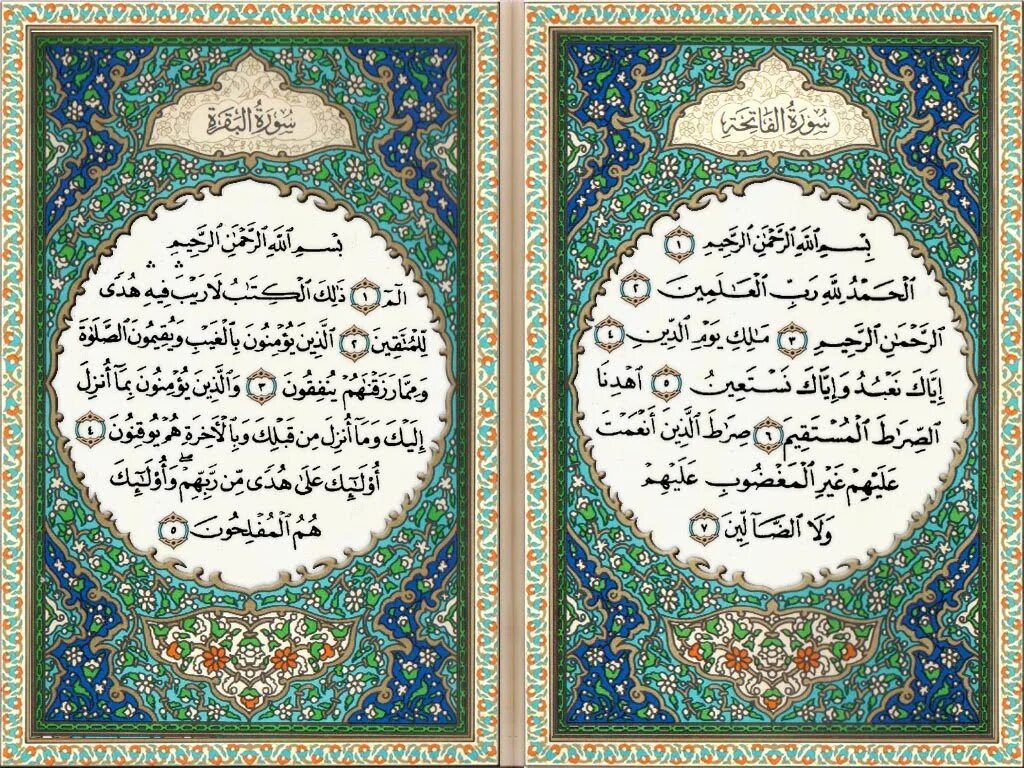 سُورَةُ الفَاتِحَةِ
بِسْمِ اللَّهِ الرَّحْمَٰنِ الرَّحِيمِ ١
الْحَمْدُ لِلَّهِ رَبِّ الْعَالَمِينَ ٢
الرَّحْمَٰنِ الرَّحِيمِ ٣ مَٰلِكِ يَوْمِ الدِّينِ ٤
إِيَّاكَ نَعْبُدُ وَإِيَّاكَ نَسْتَعِينُ ٥ اهْدِنَا
الصِّرَٰطَ الْمُسْتَقِيمَ ٦ صِرَٰطَ الَّذِينَ أَنْعَمْتَ
عَلَيْهِمْ غَيْرِ الْمَغْضُوبِ عَلَيْهِمْ
وَلَا الضَّآلِّينَ ٧
سُورَةُ البَقَرَةِ
بِسْمِ اللَّهِ الرَّحْمَٰنِ الرَّحِيمِ
الٓمٓ ١ ذَٰلِكَ الْكِتَٰبُ لَا رَيْبَ ۛ فِيهِ ۛ هُدًى
لِلْمُتَّقِينَ ٢ الَّذِينَ يُؤْمِنُونَ بِالْغَيْبِ وَيُقِيمُونَ الصَّلَوٰةَ
وَمِمَّا رَزَقْنَٰهُمْ يُنْفِقُونَ ٣ وَالَّذِينَ يُؤْمِنُونَ بِمَآ أُنْزِلَ
إِلَيْكَ وَمَآ أُنْزِلَ مِنْ قَبْلِكَ وَبِالْأَخِرَةِ هُمْ يُوقِنُونَ ٤
أُوْلَٰٓئِكَ عَلَىٰ هُدًى مِّن رَّبِّهِمْ ۖ وَأُوْلَٰٓئِكَ
هُمُ الْمُفْلِحُونَ ٥